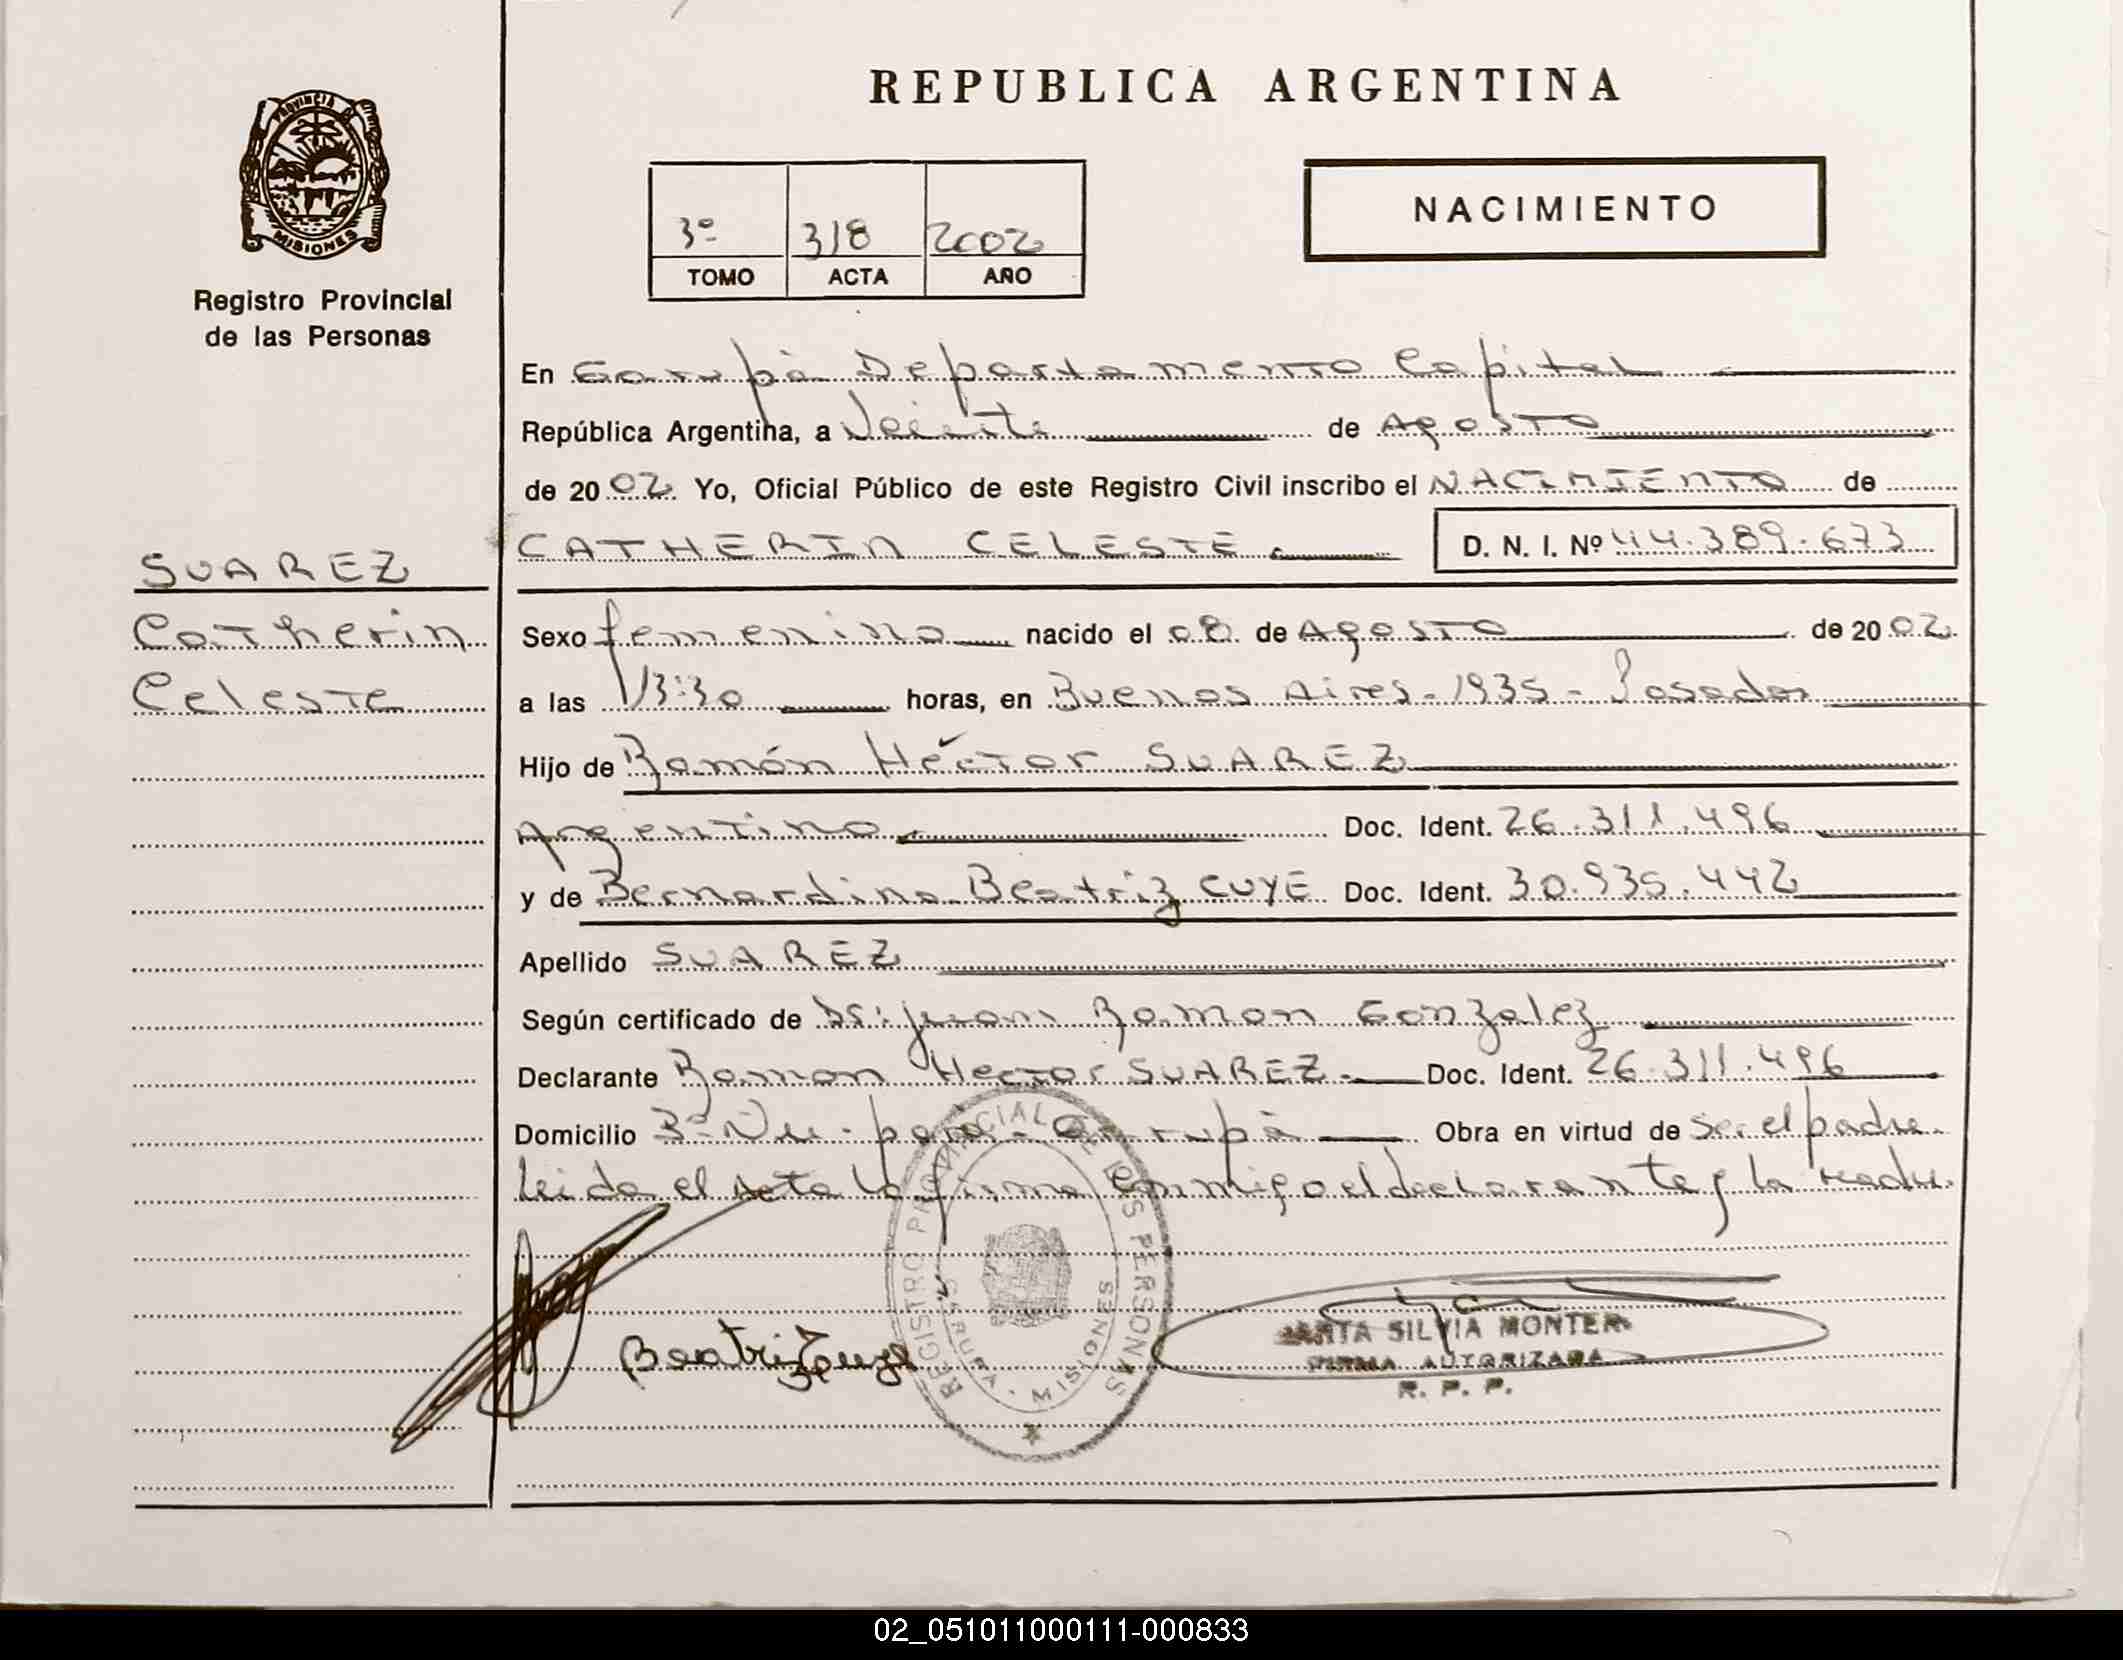 REPUBLICA ARGENTINA
PROVINCIA DE
MISIONES
Registro Provincial
de las Personas
3º 318 2002
TOMO ACTA AÑO
NACIMIENTO
En Garupá Departamento Capital
República Argentina, a Veinte de Agosto
de 2002 Yo, Oficial Público de este Registro Civil inscribo el NACIMIENTO de
CATHERIN CELESTE D. N. I. Nº 44.389.673
SUAREZ
Catherin
Celeste
Sexo femenino nacido el 08 de Agosto de 2002
a las 13:30 horas, en Buenos Aires-1935-Posadas
Hijo de Ramón Héctor SUAREZ
Argentino Doc. Ident. 26.311.496
y de Bernardina Beatriz CUYE Doc. Ident. 30.935.442
Apellido SUAREZ
Según certificado de Dr: Juan Ramon Gonzalez
Declarante Ramon Hector SUAREZ Doc. Ident. 26.311.496
Domicilio Garupá Obra en virtud de Ser el padre
leida el Acta la firma conmigo el declarante y la madre.
REGISTRO PROVINCIAL DE LAS PERSONAS
GARUPA - MISIONES
Beatriz Cuye
SILVIA MONTER
FIRMA AUTORIZADA
R. P. P.
02_051011000111-000833